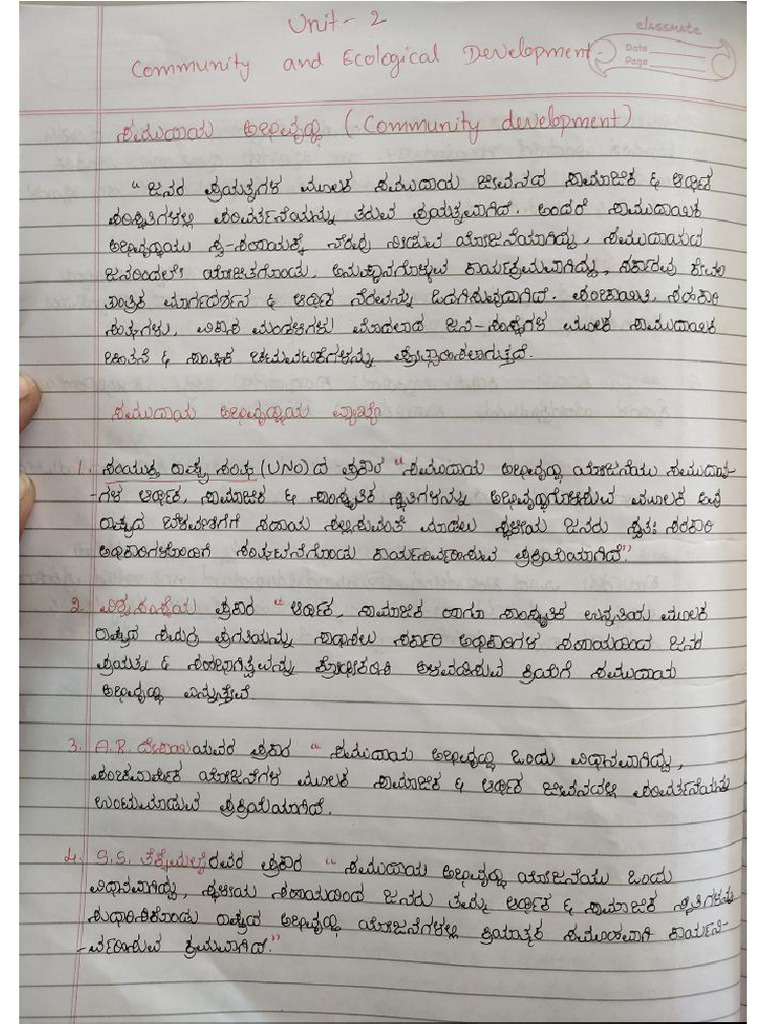 Unit - 2
classmate
Date
Page
Community and Ecological Development
ಸಮುದಾಯ ಅಭಿವೃದ್ಧಿ (Community development)
"ಜನರ ಪ್ರಯತ್ನಗಳ ಮೂಲಕ ಸಮುದಾಯ ಜೀವನದ ಸಾಮಾಜಿಕ & ಆರ್ಥಿಕ
ಪರಿಸ್ಥಿತಿಗಳಲ್ಲಿ ಪರಿವರ್ತನೆಯನ್ನು ತರುವ ಪ್ರಯತ್ನವಾಗಿದೆ. ಅಂದರೆ ಸಾಮುದಾಯಿಕ
ಅಭಿವೃದ್ಧಿಯು ಸ್ವ-ಸಹಾಯಕ್ಕೆ ನೆರವು ನೀಡುವ ಯೋಜನೆಯಾಗಿದ್ದು, ಸಮುದಾಯದ
ಜನರಿಂದಲೇ ಯೋಜಿತಗೊಂಡು, ಅನುಷ್ಠಾನಗೊಳ್ಳುವ ಕಾರ್ಯಕ್ರಮವಾಗಿದ್ದು, ಸರ್ಕಾರವು ಕೇವಲ
ತಾಂತ್ರಿಕ ಮಾರ್ಗದರ್ಶನ & ಆರ್ಥಿಕ ನೆರವನ್ನು ಒದಗಿಸುವುದಾಗಿದೆ. ಪಂಚಾಯಿತಿ, ಸಹಕಾರಿ
ಸಂಘಗಳು, ವಿಕಾಸ ಮಂಡಳಿಗಳು ಮೊದಲಾದ ಜನ-ಸಂಸ್ಥೆಗಳ ಮೂಲಕ ಸಾಮುದಾಯಿಕ
ಚಿಂತನೆ & ಸಾಂಘಿಕ ಚಟುವಟಿಕೆಗಳನ್ನು ಪ್ರೋತ್ಸಾಹಿಸಲಾಗುತ್ತದೆ.
ಸಮುದಾಯ ಅಭಿವೃದ್ಧಿಯ ವ್ಯಾಖ್ಯೆ
1. ಸಂಯುಕ್ತ ರಾಷ್ಟ್ರ ಸಂಘ (UNO) ದ ಪ್ರಕಾರ "ಸಮುದಾಯ ಅಭಿವೃದ್ಧಿ ಯೋಜನೆಯು ಸಮುದಾಯ-
-ಗಳ ಆರ್ಥಿಕ, ಸಾಮಾಜಿಕ & ಸಾಂಸ್ಕೃತಿಕ ಸ್ಥಿತಿಗಳನ್ನು ಅಭಿವೃದ್ಧಿಗೊಳಿಸುವ ಮೂಲಕ ಇಡೀ
ರಾಷ್ಟ್ರದ ಬೆಳವಣಿಗೆಗೆ ಸಹಾಯ ಸಲ್ಲಿಸುವಂತೆ ಮಾಡಲು ಸ್ಥಳೀಯ ಜನರು ಸ್ವತಃ ಸರಕಾರಿ
ಅಧಿಕಾರಿಗಳೊಂದಿಗೆ ಸಂಘಟನೆಗೊಂಡು ಕಾರ್ಯನಿರ್ವಹಿಸುವ ಪ್ರಕ್ರಿಯೆಯಾಗಿದೆ."
2. ವಿಶ್ವಸಂಸ್ಥೆಯ ಪ್ರಕಾರ "ಆರ್ಥಿಕ, ಸಾಮಾಜಿಕ ಹಾಗೂ ಸಾಂಸ್ಕೃತಿಕ ಉನ್ನತಿಯ ಮೂಲಕ
ರಾಷ್ಟ್ರದ ಸಮಗ್ರ ಪ್ರಗತಿಯನ್ನು ಸಾಧಿಸಲು ಸರ್ಕಾರಿ ಅಧಿಕಾರಿಗಳ ಸಹಾಯದಿಂದ ಜನರ
ಪ್ರಯತ್ನ & ಸಹಭಾಗಿತ್ವವನ್ನು ಕ್ರೋಢೀಕರಿಸಿ ಅಳವಡಿಸುವ ಕ್ರಿಯೆಗೆ ಸಮುದಾಯ
ಅಭಿವೃದ್ಧಿ ಎನ್ನುತ್ತೇವೆ.
3. A.R. ದೇಸಾಯಿಯವರ ಪ್ರಕಾರ "ಸಮುದಾಯ ಅಭಿವೃದ್ಧಿ ಒಂದು ವಿಧಾನವಾಗಿದ್ದು,
ಪಂಚವಾರ್ಷಿಕ ಯೋಜನೆಗಳ ಮೂಲಕ ಸಾಮಾಜಿಕ & ಆರ್ಥಿಕ ಜೀವನದಲ್ಲಿ ಪರಿವರ್ತನೆಯನ್ನು
ಉಂಟುಮಾಡುವ ಪ್ರಕ್ರಿಯೆಯಾಗಿದೆ.
4. S.S. ರವರ ಪ್ರಕಾರ "ಸಮುದಾಯ ಅಭಿವೃದ್ಧಿ ಯೋಜನೆಯು ಒಂದು
ವಿಧಾನವಾಗಿದ್ದು, ಸ್ಥಳೀಯ ಸಹಾಯದಿಂದ ಜನರು ತಮ್ಮ ಆರ್ಥಿಕ & ಸಾಮಾಜಿಕ ಸ್ಥಿತಿಗಳನ್ನು
ಸುಧಾರಿಸಿಕೊಂಡು ರಾಷ್ಟ್ರದ ಅಭಿವೃದ್ಧಿ ಯೋಜನೆಗಳಲ್ಲಿ ಕ್ರಿಯಾತ್ಮಕ ಸಮೂಹವಾಗಿ ಕಾರ್ಯನಿ-
-ರ್ವಹಿಸುವ ಕ್ರಮವಾಗಿದೆ."